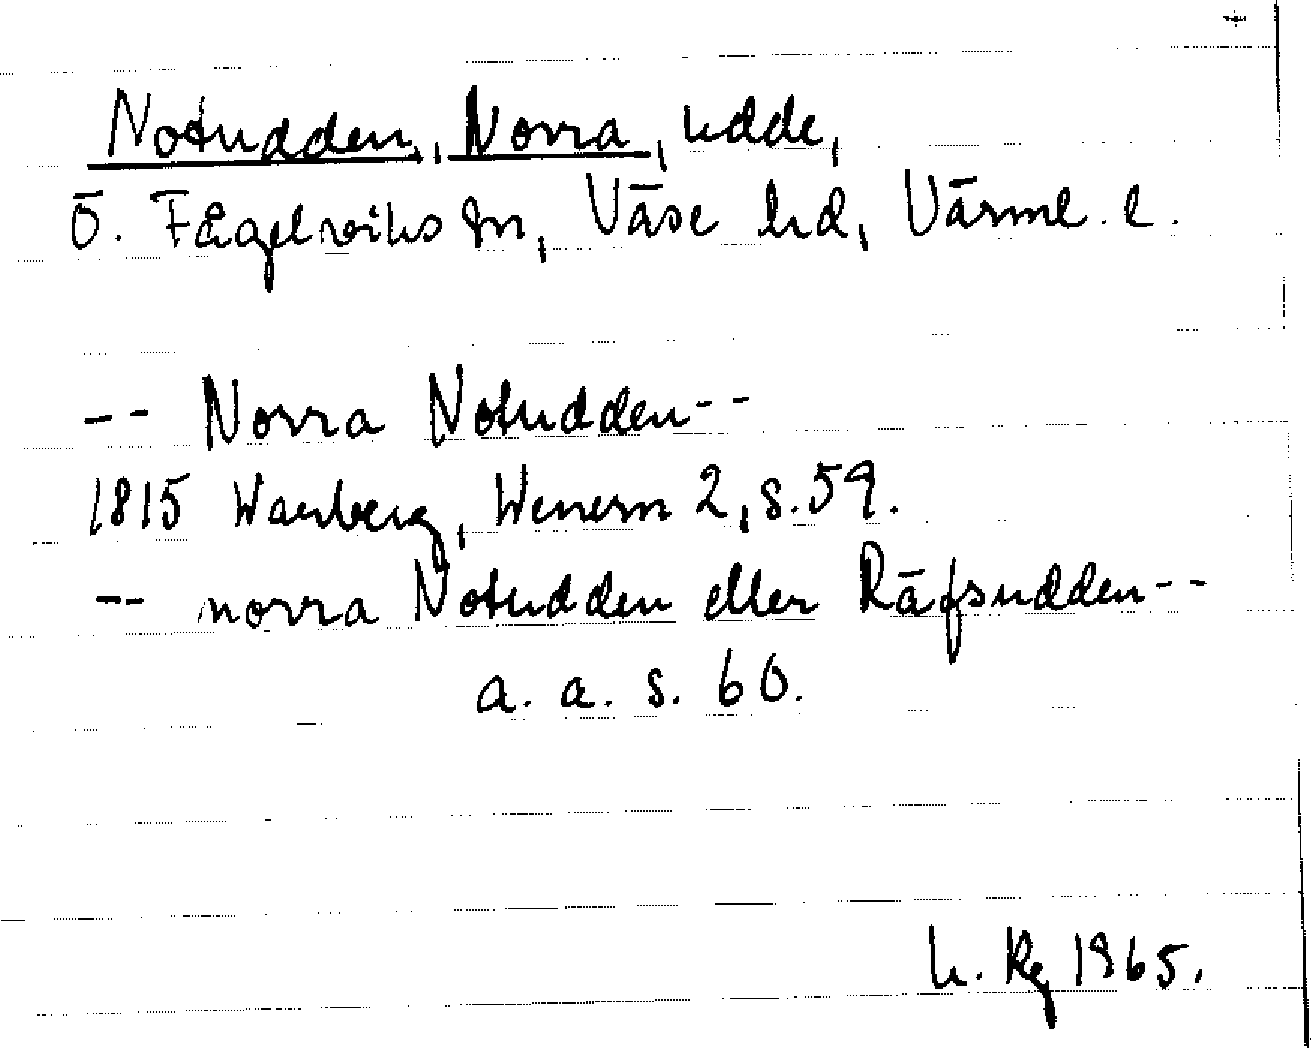 Notudden, Norra, udde,
Ö. Fågelviks sn, Väse hd, Värml. l.
-- Norra Notudden --
1815 Warberg, Wenern 2, s. 59.
-- norra Notudden eller Räfsudden --
a. a. s. 60.
Kg 1965.